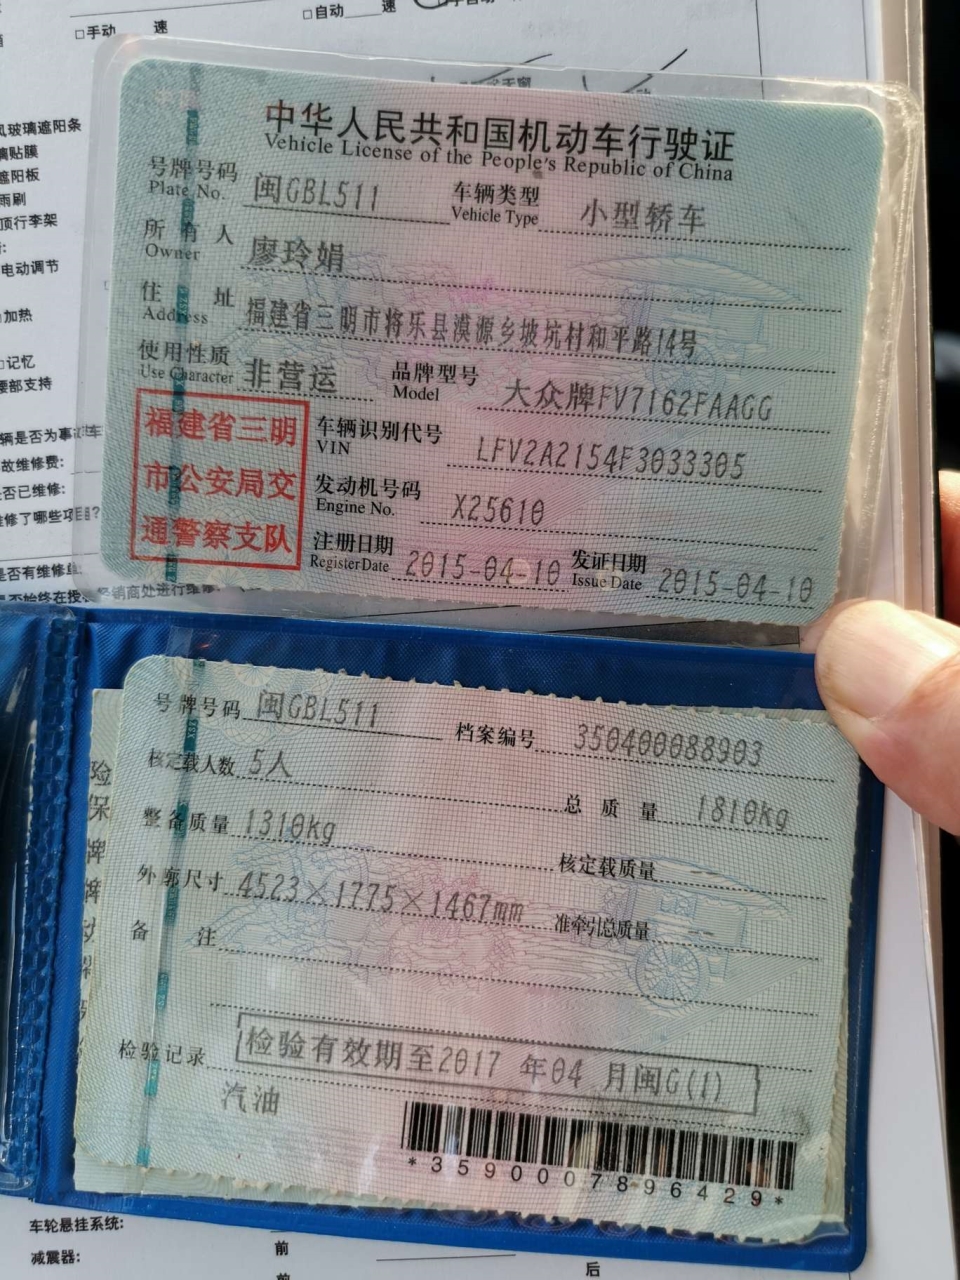 □手动 速
□自动 速
风玻璃遮阳条
璃贴膜
遮阳板
雨刷
顶行李架
电动调节
加热
记忆
腰部支持
辆是否为事故车
故维修费:
是否已维修:
维修了哪些项目?
是否有维修单
是否始终在授 经销商处进行维修
中华人民共和国机动车行驶证
Vehicle License of the People's Republic of China
号牌号码 Plate No. 闽GBL511 车辆类型 Vehicle Type 小型轿车
所有人 Owner 廖玲娟
住址 Address 福建省三明市将乐县漠源乡坡坑村和平路14号
使用性质 Use Character 非营运 品牌型号 Model 大众牌FV7162FAAGG
福建省三明
市公安局交
通警察支队
车辆识别代号 VIN LFV2A2154F3033305
发动机号码 Engine No. X25610
注册日期 Register Date 2015-04-10 发证日期 Issue Date 2015-04-10
号牌号码 闽GBL511 档案编号 350400088903
核定载人数 5人 总质量 1810kg
整备质量 1310kg 核定载质量
外廓尺寸 4523×1775×1467mm 准牵引总质量
备注
检验记录 检验有效期至2017 年04 月闽G(1)
汽油
*3590007896429*
险
保
牌
牌
车轮悬挂系统:
减震器: 前
后